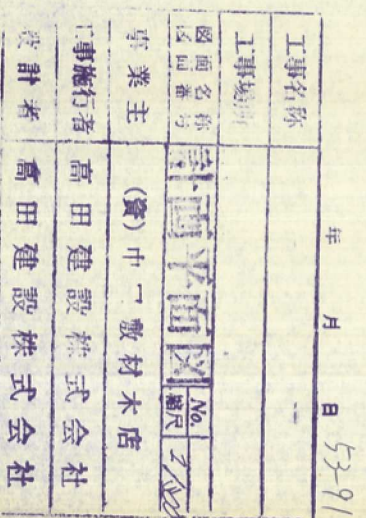 年 月 日 53-91
工事名称
工事場所
図面名称 計画平面図 No.
図面番号 縮尺
事業主 (資)中一敷材木店
工事施行者 高田建設株式会社
設計者 高田建設株式会社